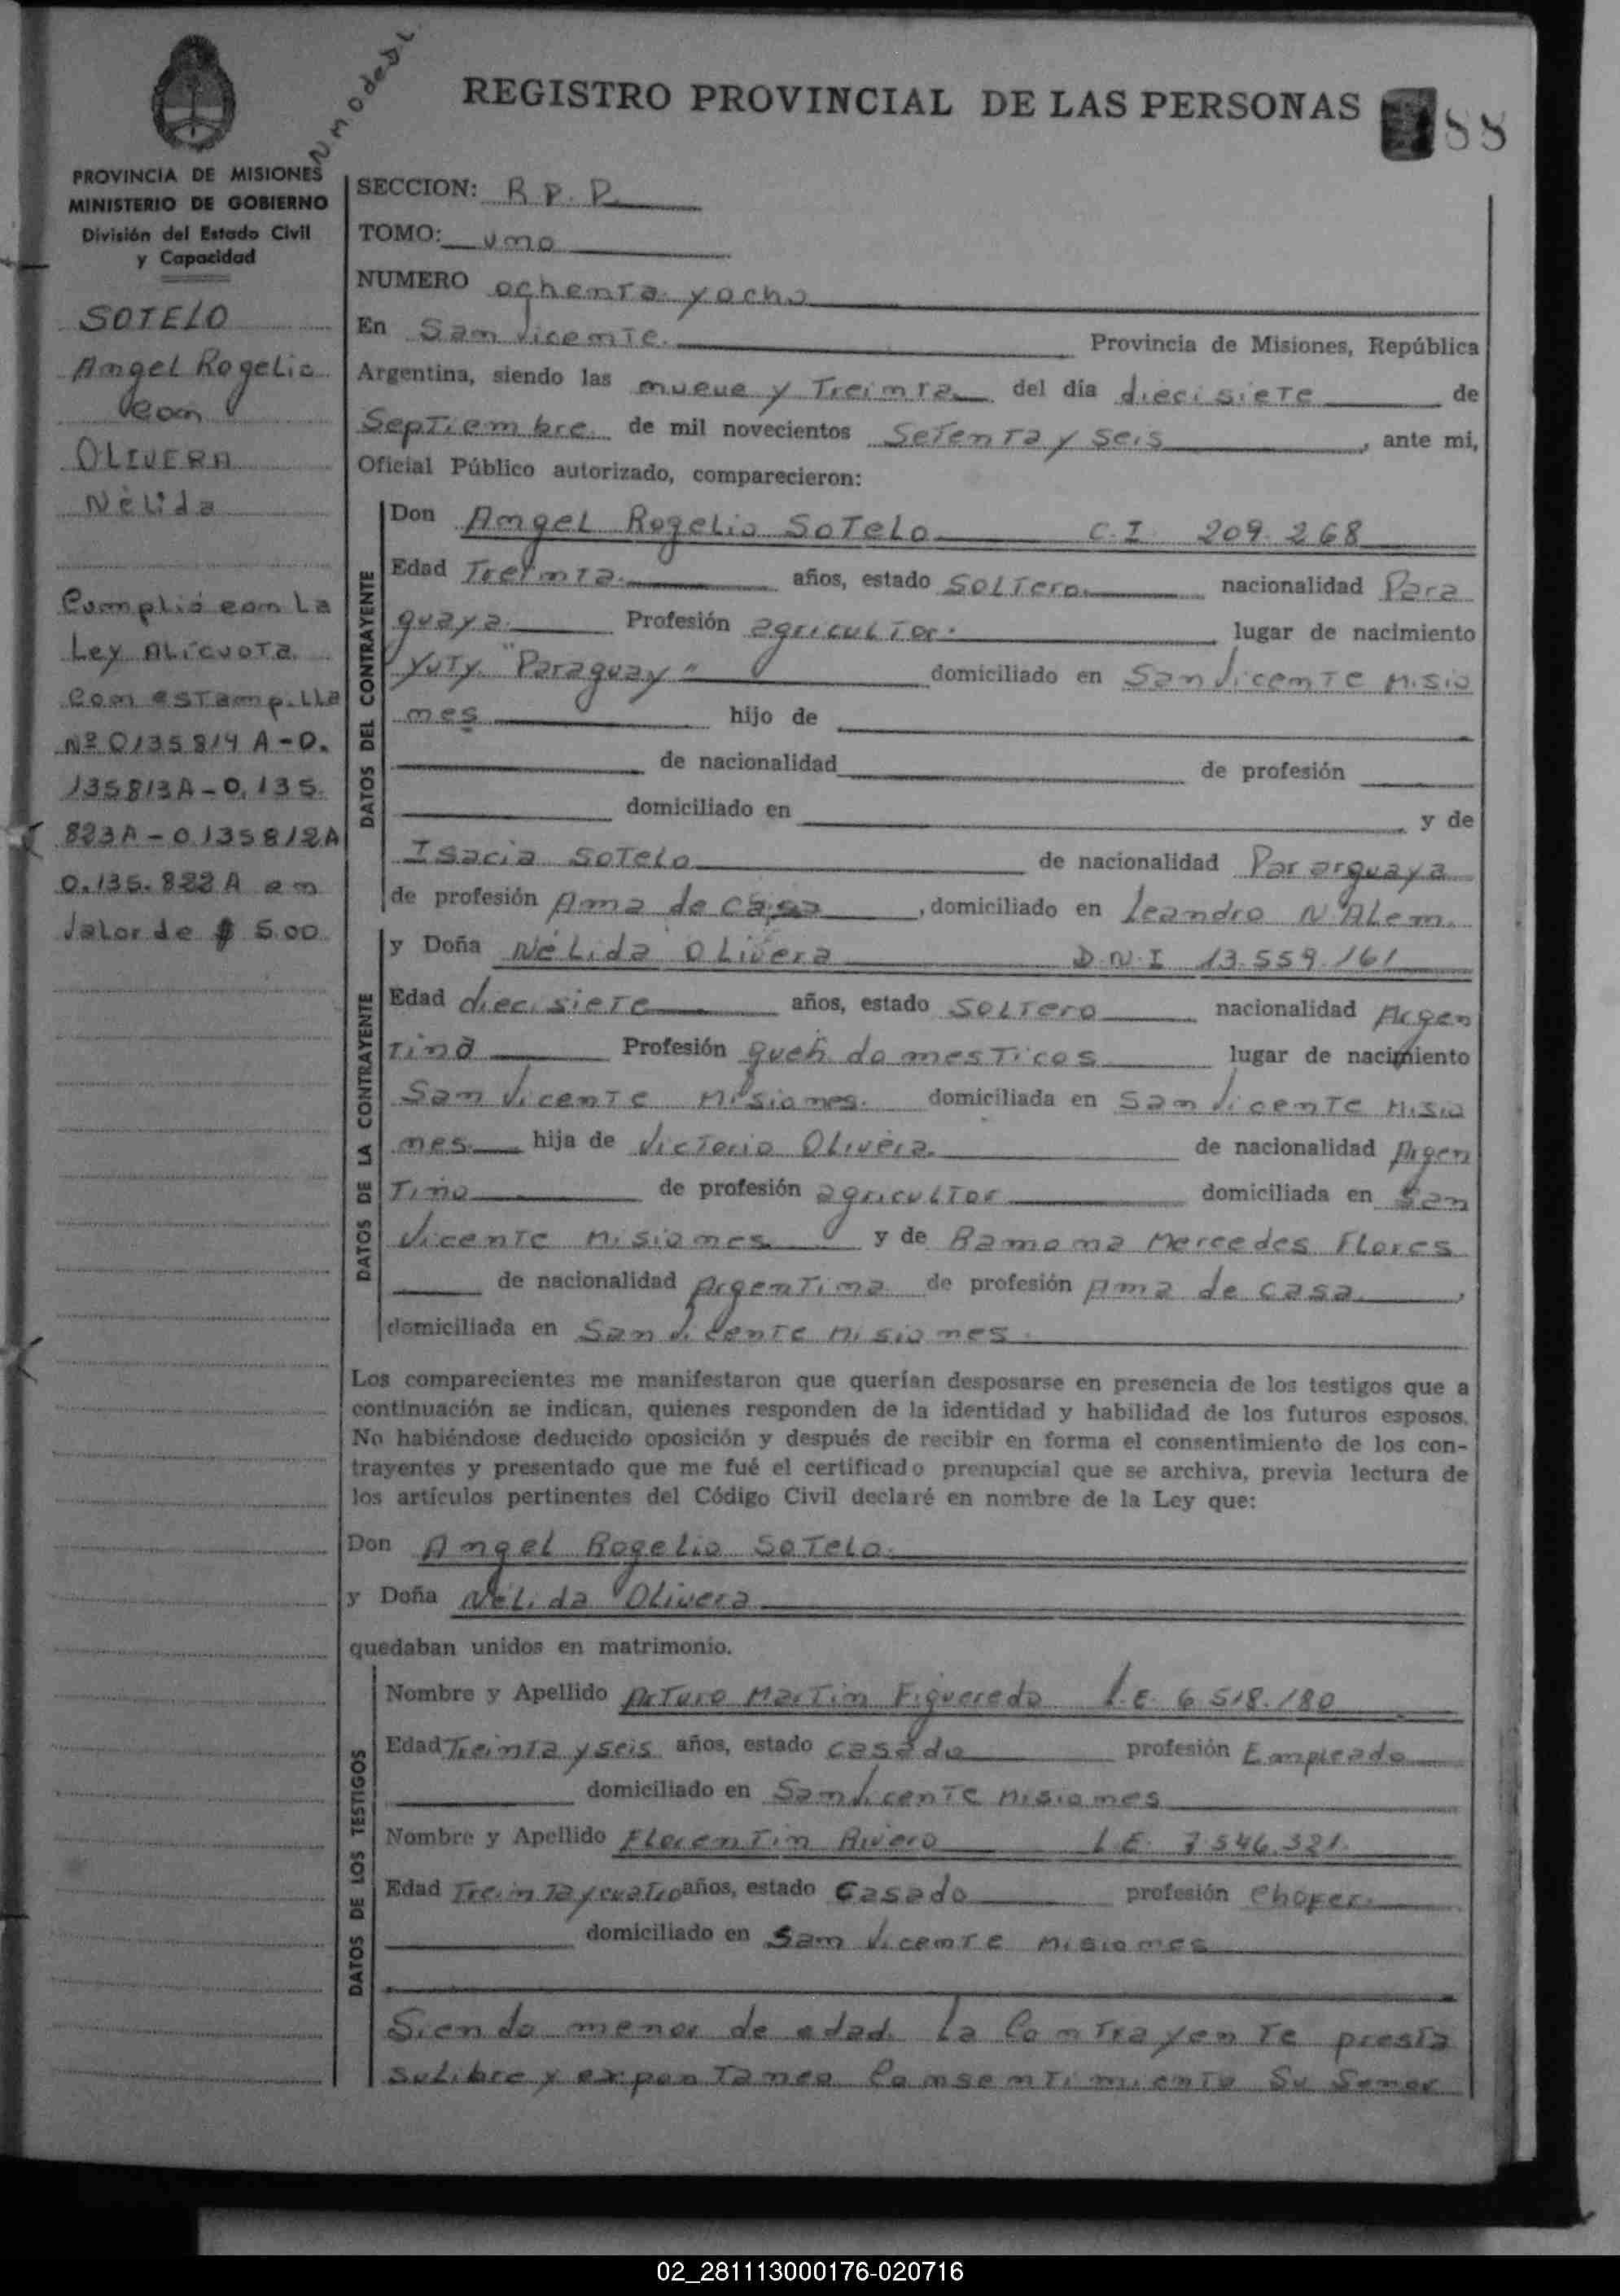 REGISTRO PROVINCIAL DE LAS PERSONAS
88
PROVINCIA DE MISIONES
MINISTERIO DE GOBIERNO
División del Estado Civil
y Capacidad
SOTELO
Angel Rogelio
Con
OLIVERA
Nélida
Cumplió con La
Ley Alicuota
Con estampilla
Nº 0135814 A - 0.
135813A - 0.135.
823A - 0135812A
0.135.822 A en
Valor de $ 5.00
SECCION: R.P.P.
TOMO: uno
NUMERO ochenta y ocho
En San Vicente. Provincia de Misiones, República
Argentina, siendo las nueve y Treinta del día diecisiete de
Septiembre de mil novecientos Setenta y seis, ante mi,
Oficial Público autorizado, comparecieron:
DATOS DEL CONTRAYENTE
Don Angel Rogelio Sotelo C.I. 209.268
Edad Treinta años, estado Soltero nacionalidad Para
guaya Profesión agricultor. lugar de nacimiento
Yuty. "Paraguay" domiciliado en San Vicente Misio
nes hijo de
de nacionalidad de profesión
domiciliado en y de
Isacia Sotelo de nacionalidad Pararguaya
de profesión Ama de casa, domiciliado en Leandro N Alem.
DATOS DE LA CONTRAYENTE
y Doña Nélida Olivera D.N.I 13.559.161
Edad diecisiete años, estado Soltero nacionalidad Argen
tina Profesión queh domesticos lugar de nacimiento
San Vicente Misiones. domiciliada en San Vicente Misio
nes. hija de Victorio Olivera. de nacionalidad Argen
Tino de profesión agricultor domiciliada en San
Vicente Misiones y de Ramona Mercedes Flores
de nacionalidad Argentina de profesión Ama de casa,
domiciliada en San Vicente Misiones.
Los comparecientes me manifestaron que querían desposarse en presencia de los testigos que a
continuación se indican, quienes responden de la identidad y habilidad de los futuros esposos.
No habiéndose deducido oposición y después de recibir en forma el consentimiento de los con-
trayentes y presentado que me fué el certificado prenupcial que se archiva, previa lectura de
los artículos pertinentes del Código Civil declaré en nombre de la Ley que:
Don Angel Rogelio Sotelo.
y Doña Nélida Olivera
quedaban unidos en matrimonio.
DATOS DE LOS TESTIGOS
Nombre y Apellido Arturo Martin Figueredo L.E. 6.518.180
Edad Treinta y seis años, estado casado profesión Empleado
domiciliado en San Vicente Misiones
Nombre y Apellido Florentin Rivero L.E. 7.546.321.
Edad Treinta y cuatro años, estado Casado profesión Chofer.
domiciliado en San Vicente Misiones
Siendo menor de edad La Contrayente presta
su Libre y expontaneo Consentimiento Su Señor
02_281113000176-020716